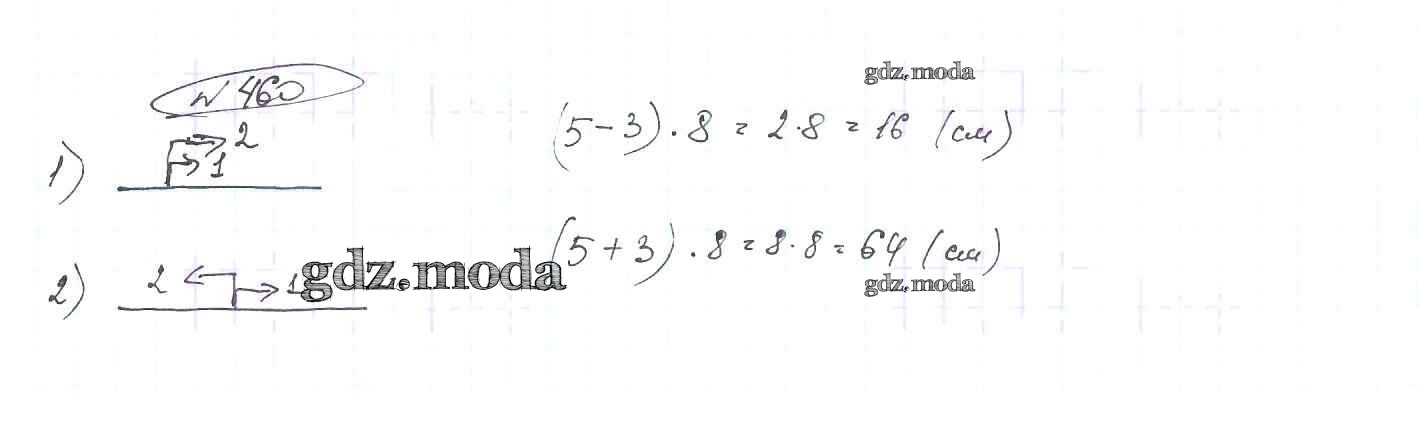 N 460
gdz.moda
1) 2 1 (5-3)·8 = 2·8 = 16 (см)
2) 2 1 gdz.moda (5+3)·8 = 8·8 = 64 (см)
gdz.moda